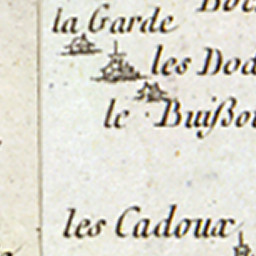 la Garde
les Dod
le Buißo
les Cadoux